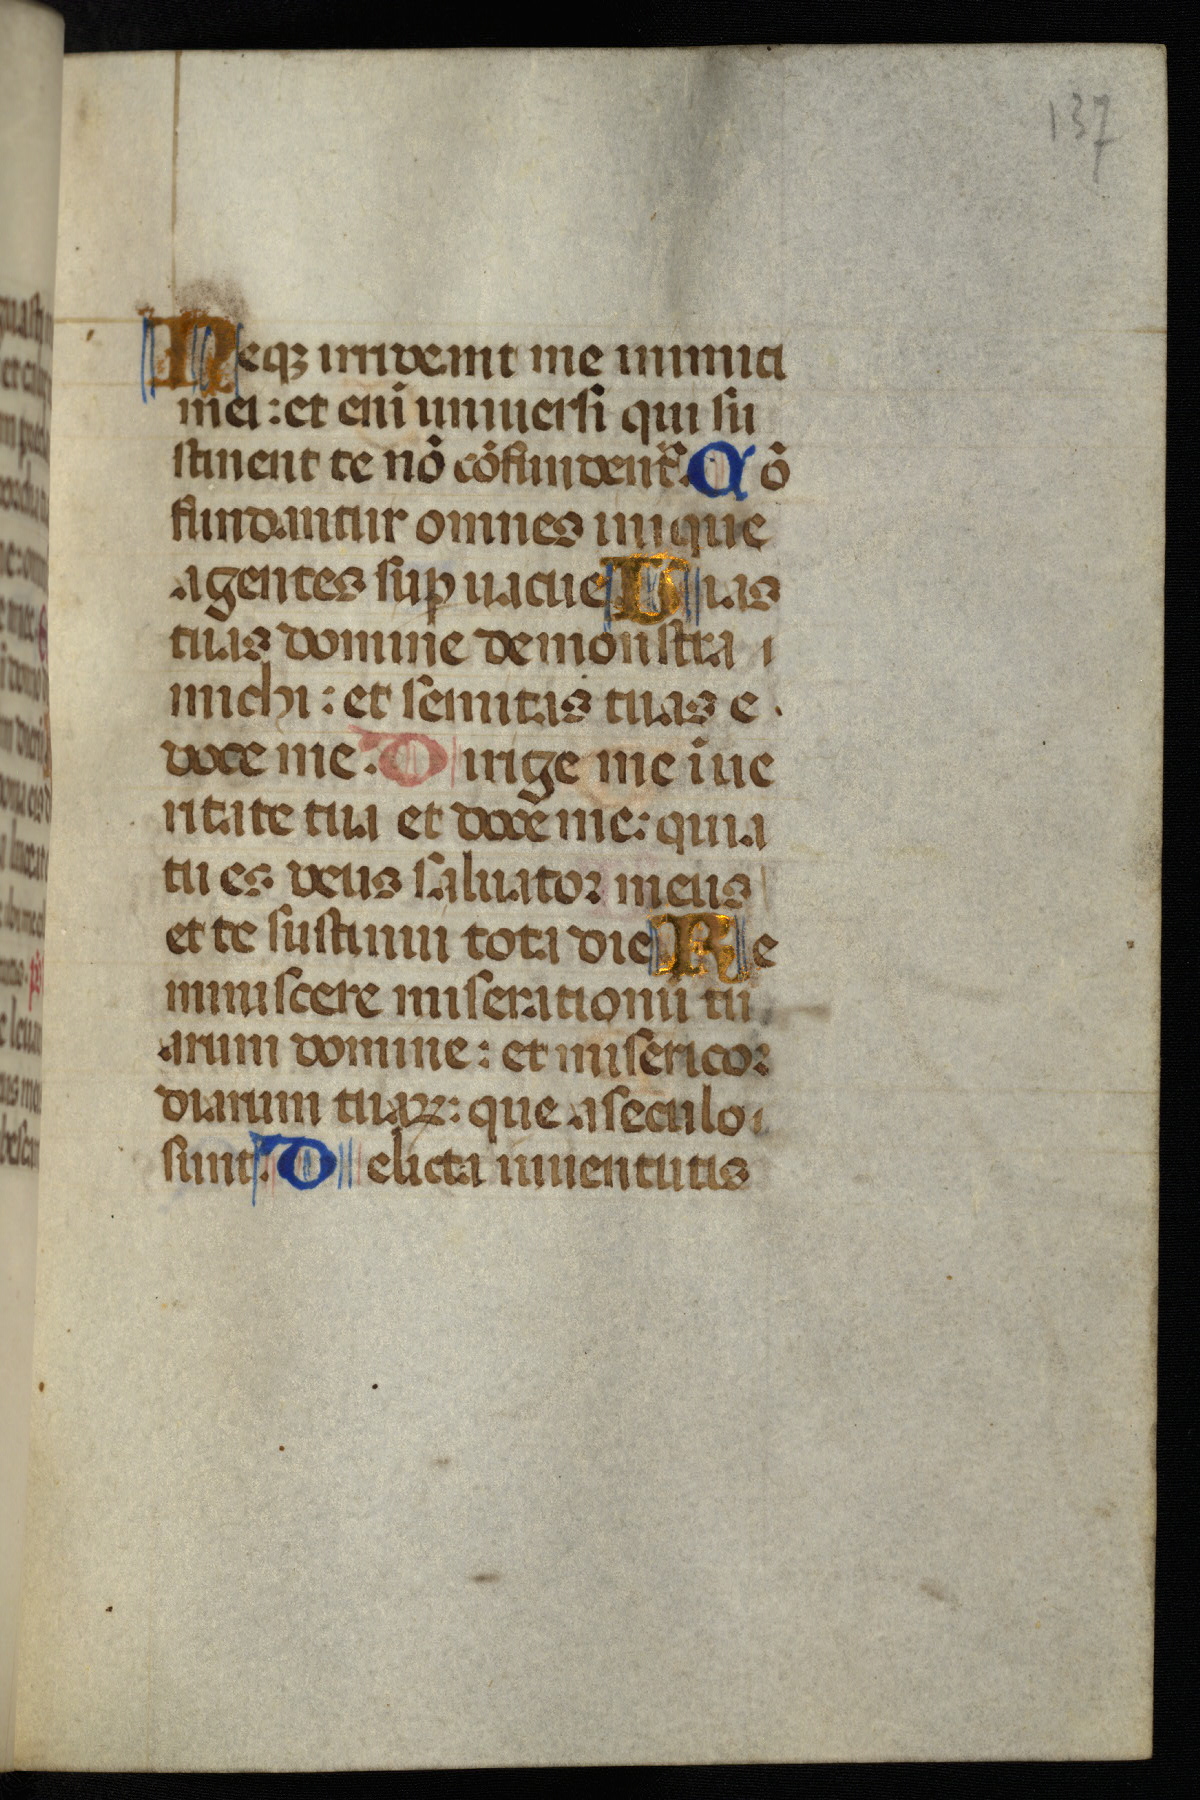 137
Neqꝫ irrideant me inimici
mei : et eni universi qui su
stinent te nō cōfundentr̃. Cō
fundantur omnes inique
agentes suꝑvacue Vias
tuas domine demonstra
michi : et semitas tuas e
doce me. Dirige me i ve
ritate tua et doce me : quia
tu es deus salvator meus
et te sustinui tota die Re
miniscere miserationū tu
arum domine : et misericor
diarum tuaꝝ : que a seculo
sunt. Delicta iuventutis